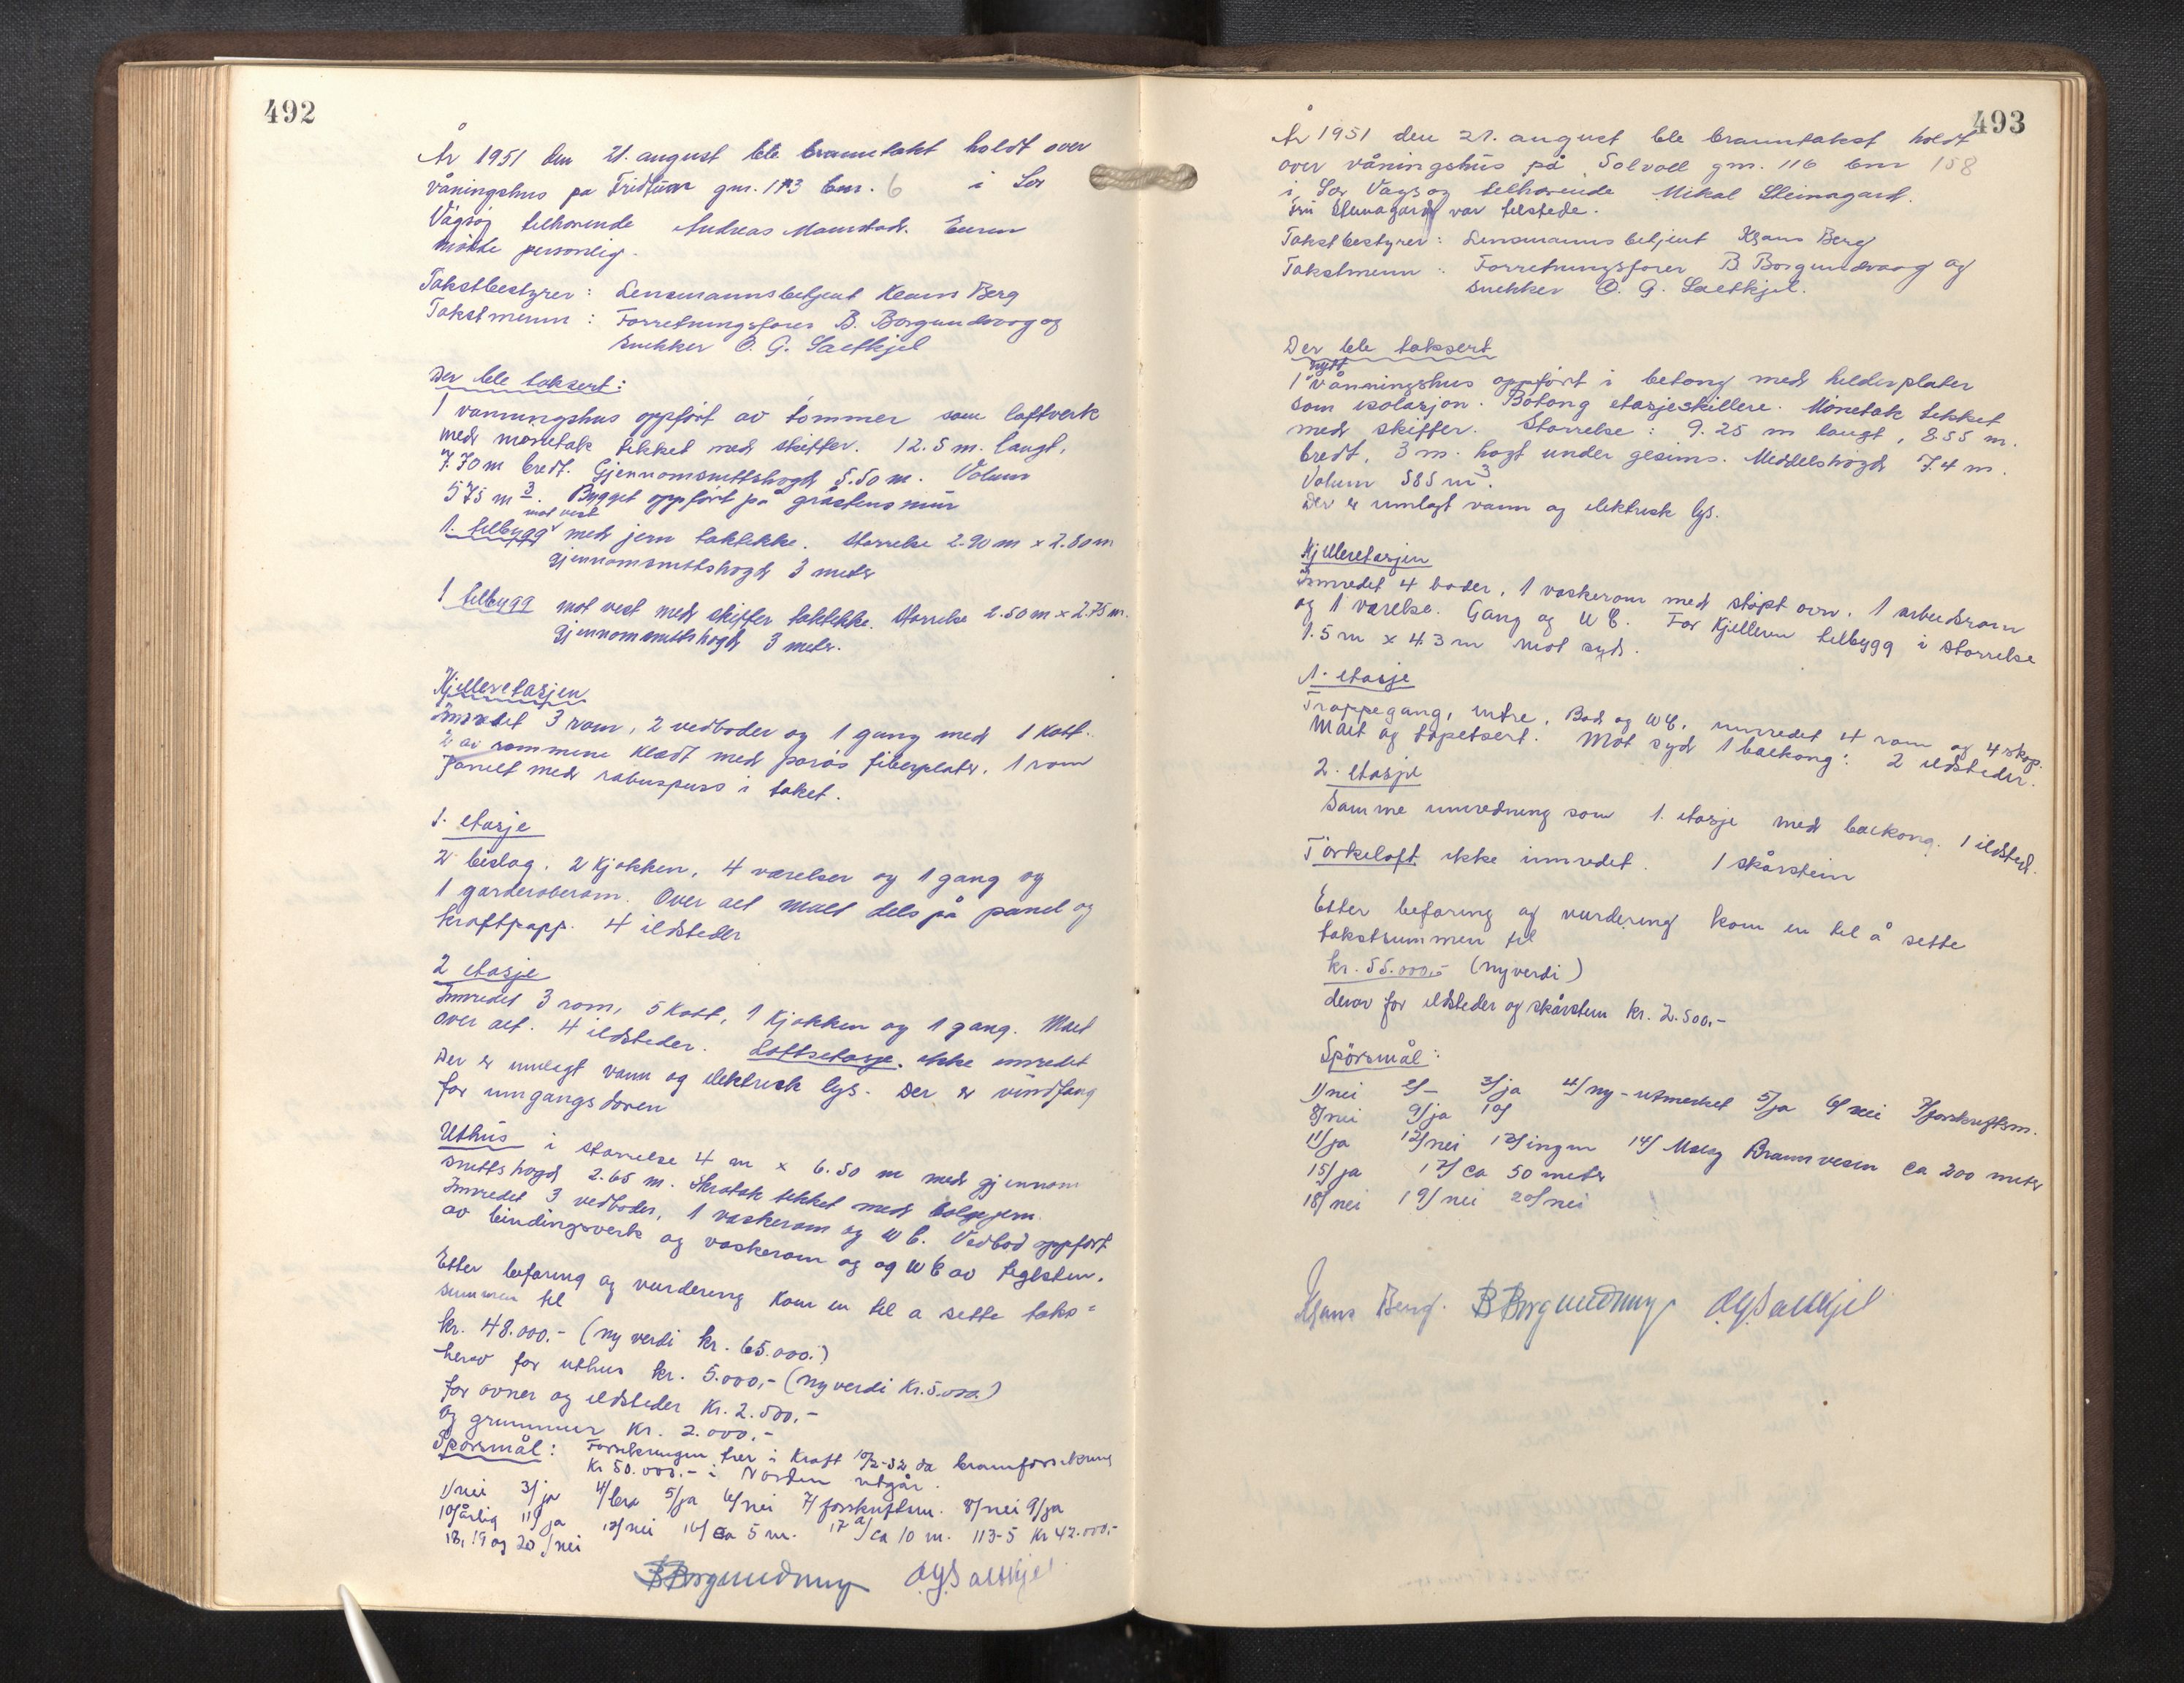 492
År 1951 den 21. august ble branntakst holdt over
våningshus på Fridtun gnr. 113 bnr. 6 i Sør
Vågsøy tilhørende Andreas Maurstad. Eieren
møtte personlig.
Takstbestyrer: Lensmannsbetjent Klaus Berg
Takstmenn: Forretningsfører B. Borgundvaag og
snekker O. G. Saltkjel
Der ble taksert:
1 vanningshus oppført av tømmer som loftverk
med mønetak tekket med skiffer. 12.5 m. langt,
7.70 m bredt. Gjennomsnittshøgd 5.50 m. Volum
575 m3. Bygget oppført på gråstens mur
mot vest
1. tilbygg med jern taktekke. Størrelse 2.90 m x 2.80 m
gjennomsnittshøgd 3 meter
1 tilbygg mot vest med skiffer taktekke. Størrelse 2.50 m x 2.75 m.
Gjennomsnittshøgd 3 meter.
Kjelleretasjen
Innredet 3 rom, 2 vedboder og 1 gang med 1 kott.
2 av rommene kledt med porøs fiberplater, 1 rom
panelt med rabuspuss i taket.
1. etasje
2 bislag, 2 kjøkken, 4 værelser og 1 gang og
1 garderoberom. Over alt malt dels på panel og
kraftpapp. 4 ildsteder
2 etasje
Innredet 3 rom, 5 kott, 1 kjøkken og 1 gang. Malt
over alt. 4 ildsteder. Loftsetasje ikke innredet
Der er innlagt vann og elektrisk lys. Der er vindfang
for inngangsdøren
Uthus i størrelse 4 m x 6.50 m med gjennom
snittshøgd 2.65 m. Skråtak tekket med bølgejern.
Innredet 3 vedboder, 1 vaskerom og W C. Vedbod oppført
av bindingsverk og vaskerom og og W C av teglsten.
Etter befaring og vurdering kom en til a sette takst=
summen til
kr. 48.000.- (ny verdi kr. 65.000.)
herav for uthus kr. 5.000,- (nyverdi Kr. 5.000.)
for ovner og ildsteder Kr. 2.500.-
og grunnmur Kr. 2.000.-
Spørsmål: Forsikringen trer i Kraft 10/2-52 da brannforsikring
Kr 50.000.- i Norden utgår.
1/nei 3/ja 4/bra 5/ja 6/nei 7/forskriftsm. 8/nei 9/ja
10/årlig 11/ja 12/nei 16/ca 5 m. 17 a/ca 10 m. 113-5 Kr 42.000.-
18, 19 og 20/nei
B Borgundvaag OGSaltkjel
493
År 1951 den 21. august ble branntakst holdt
over våningshus på Solvoll gnr. 116 bnr 158
i Sør Vågsøy tilhørende Mikal Steinagard.
Fru Steinagard var tilstede.
Takstbestyrer: Lensmannsbetjent Klaus Berg
Takstmenn: Forretningsfører B Borgundvaag og
snekker O. G. Saltkjel.
Der ble taksert
nytt
1 vånningshus oppført i betong med helderplater
som isolasjon. Betong etasjeskillere. Mønetak tekket
med skiffer. Størrelse: 9.25 m langt, 8.55 m.
bredt, 3 m. høgt under gesims. Middelshøgd 7.4 m.
Volum 585 m3.
Der er innlagt vann og elektrisk lys.
Kjelleretasjen
Innredet 4 boder, 1 vaskerom med støpt ovn, 1 arbeidsrom
og 1 værelse. Gang og W C. For kjelleren tilbygg i størrelse
1.5 m x 4.3 m mot syd.
1. etasje
Trappegang, entre, Bad og WC, innredet 4 rom og 4 skap.
Malt og tapetsert. Mot syd 1 balkong: 2 ildsteder.
2. etasje
Samme innredning som 1. etasje med balkong. 1 ildsted.
Tørkeloft ikke innredet. 1 skårstein
Etter befaring og vurdering kom en til å sette
takstsummen til
kr. 55.000.- (nyverdi)
derav for ildsteder og skårstein kr. 2.500.-
Spörsmål:
1/nei 2/- 3/ja 4/ny - utmerket 5/ja 6/nei 7/forskriftsm.
8/nei 9/ja 10/
11/ja 12/nei 13/ingen 14/ Måløy Brannvesen ca 200 meter
15/ja 17/ca 50 meter
18/nei 19/nei 20/nei
Klaus Berg. B Borgundvaag OGSaltkjel